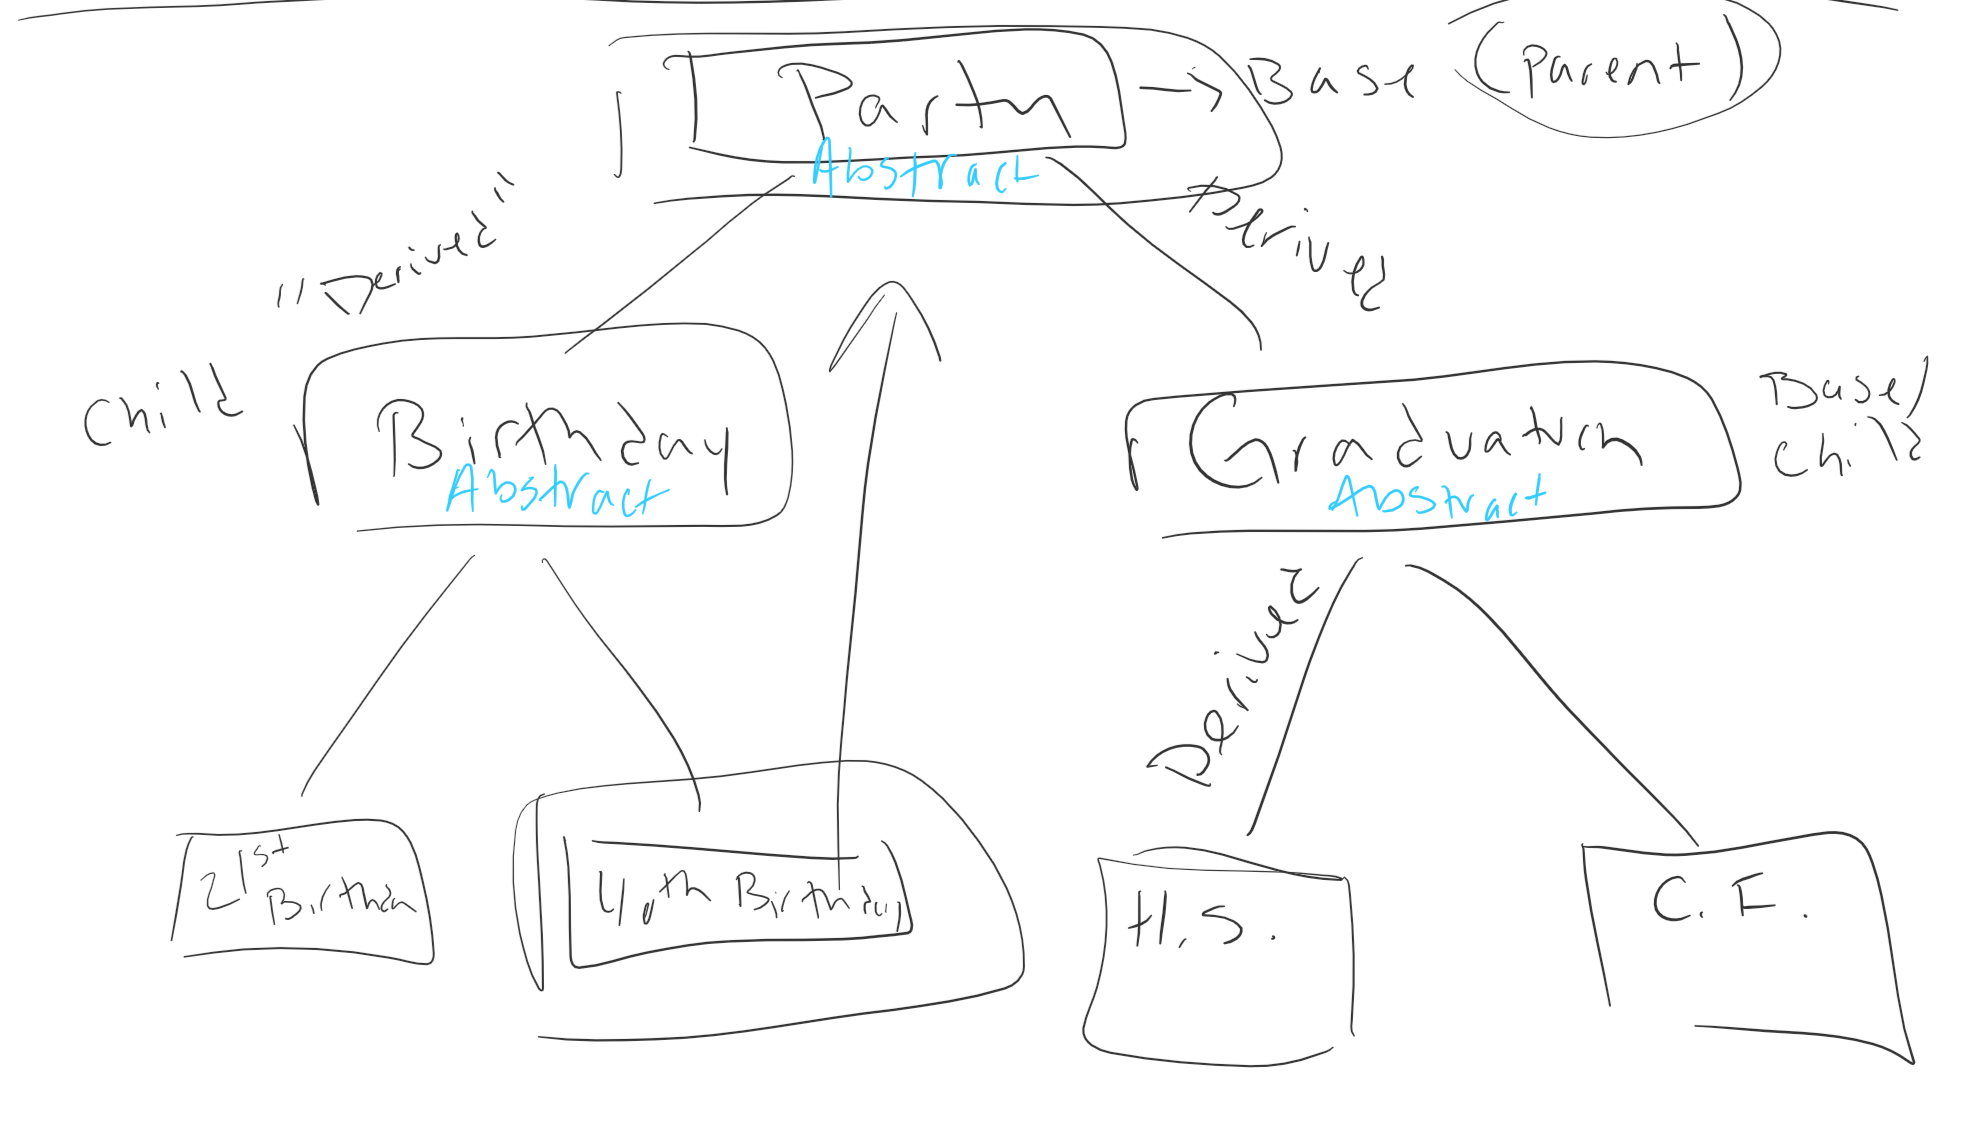 Party → Base (parent)
Abstract
"Derived"
Derived
Child
Birthday
Abstract
Graduation
Abstract
Base/
Child
Derived
21st
Birthday
40th Birthday
H.S.